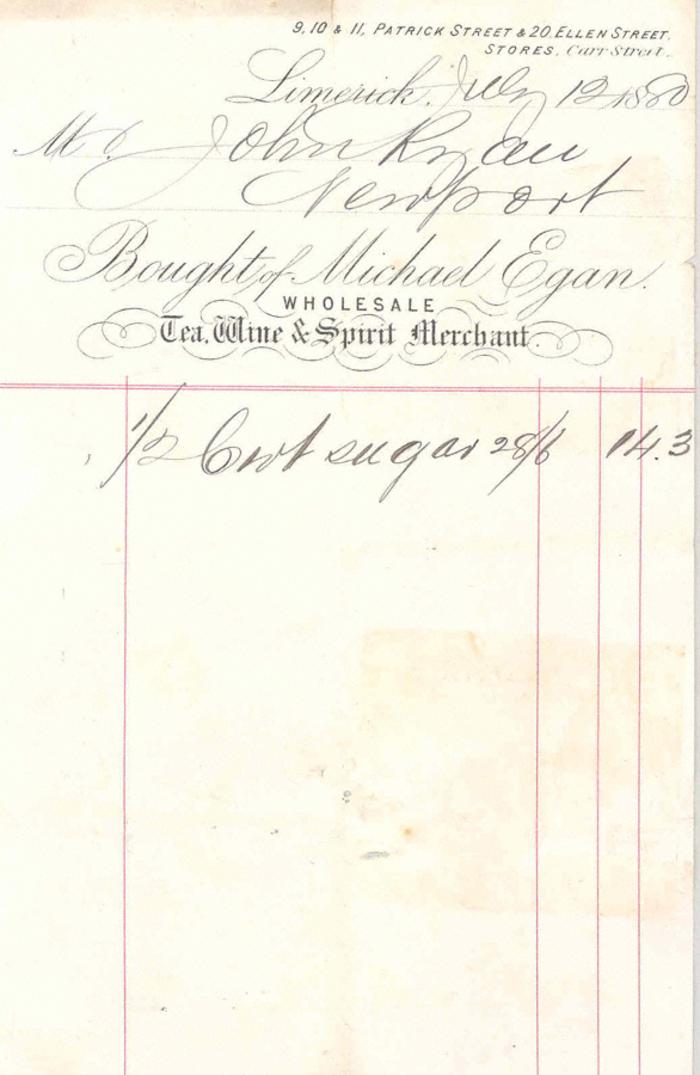 9, 10 & 11, PATRICK STREET & 20, ELLEN STREET.
STORES, Carr Street.
Limerick, July 12 1880
Mr. John Ryan
Newport
Bought of Michael Egan.
WHOLESALE
Tea, Wine & Spirit Merchant.
1/2 Cwt sugar 28/6 14.3